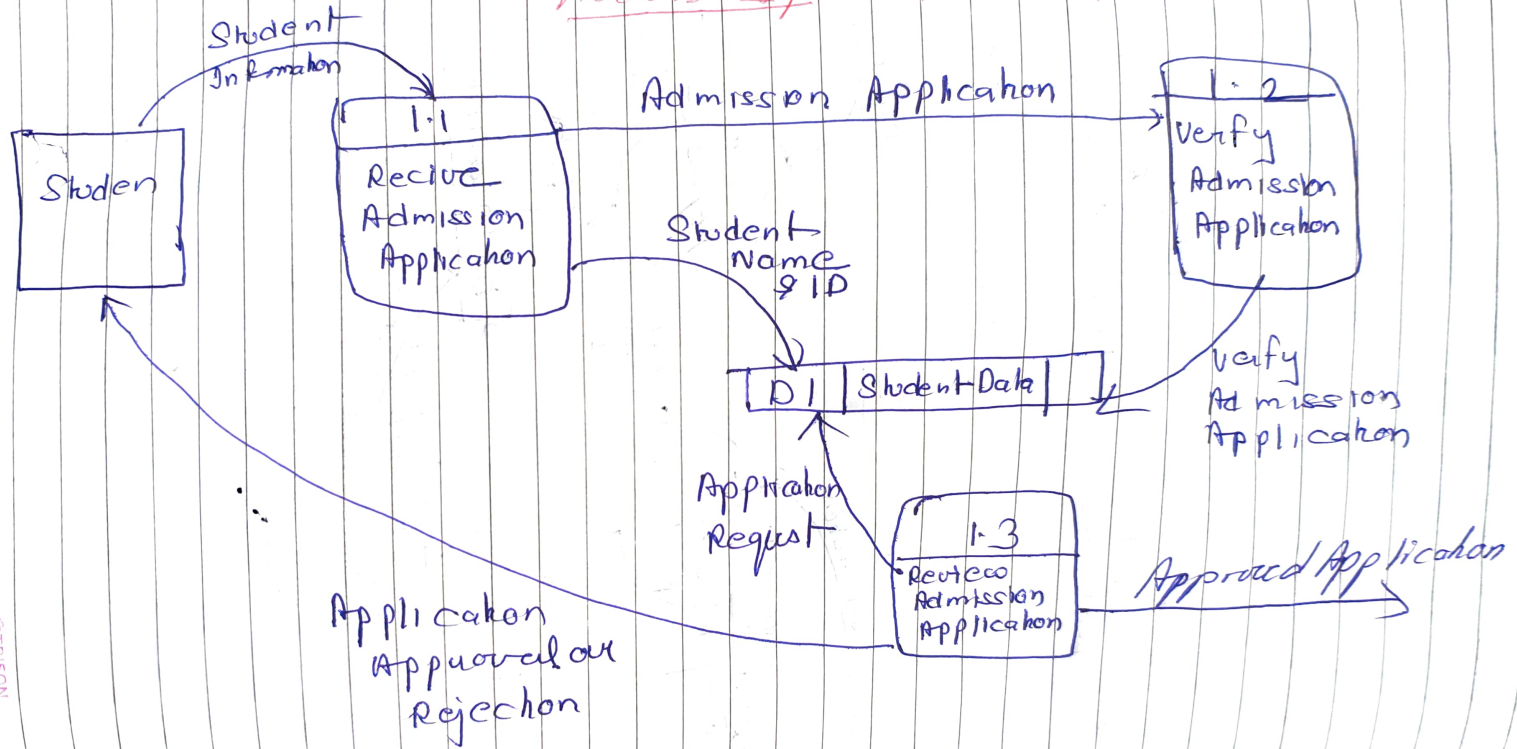 Student
Information
Studen
1.1
Recive
Admission
Application
Admission Application
1.2
Verify
Admission
Application
Student
Name
& ID
D1 Student Data
Verify
Admission
Application
Application
Request
1.3
Review
Admission
Application
Approved Application
Application
Approval or
Rejection